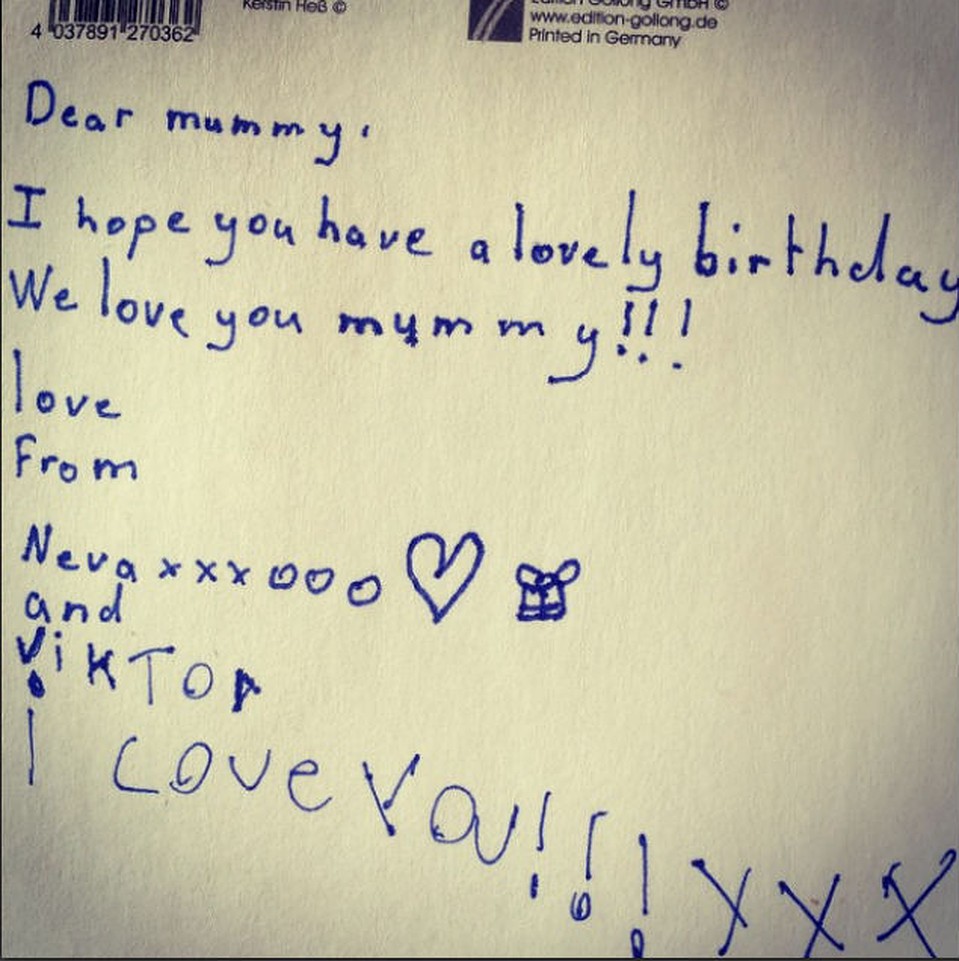 Kerstin Heß ©
Edition Gollong GmbH ©
www.edition-gollong.de
4 037891 270362
Printed in Germany
Dear mummy.
I hope you have a lovely birthday
We love you mummy!!!
love
From
Neva xxxooo
and
Viktor
I Love You!!! xxx